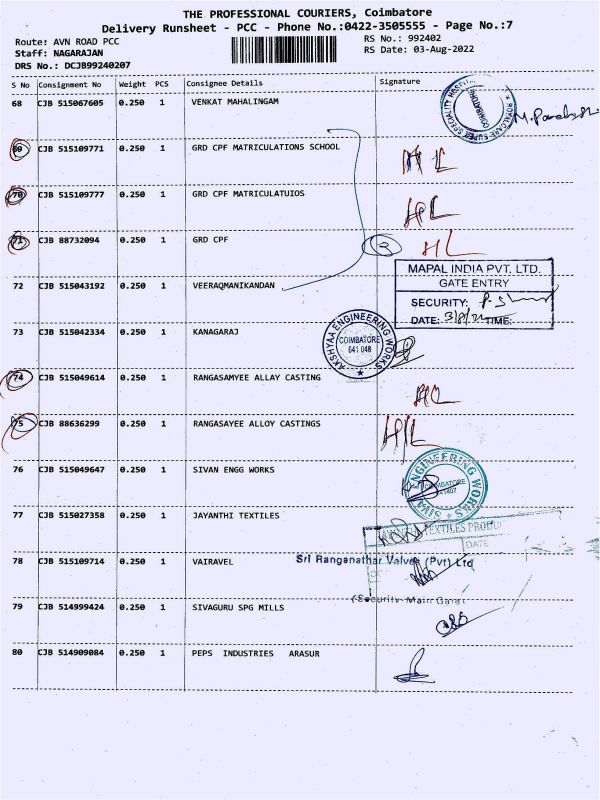 THE PROFESSIONAL COURIERS, Coimbatore
Delivery Runsheet - PCC - Phone No.:0422-3505555 - Page No.:7
Route: AVN ROAD PCC
RS No.: 992402
Staff: NAGARAJAN
RS Date: 03-Aug-2022
DRS No.: DCJB99240207
S No Consignment No Weight PCS Consignee Details Signature
68 CJB 515067605 0.250 1 VENKAT MAHALINGAM
ROYAL CARE SUPER SPECIALITY HOSPITAL
COIMBATORE
69 CJB 515109771 0.250 1 GRD CPF MATRICULATIONS SCHOOL HL
70 CJB 515109777 0.250 1 GRD CPF MATRICULATUIOS HL
71 CJB 88732094 0.250 1 GRD CPF 2 HL
72 CJB 515043192 0.250 1 VEERAQMANIKANDAN
MAPAL INDIA PVT. LTD.
GATE ENTRY
SECURITY:
DATE: 3/8/22 TIME:
73 CJB 515042334 0.250 1 KANAGARAJ
AKSHYAA ENGINEERING WORKS
COIMBATORE
641 048
74 CJB 515049614 0.250 1 RANGASAMYEE ALLAY CASTING HL
75 CJB 88636299 0.250 1 RANGASAYEE ALLOY CASTINGS HL
76 CJB 515049647 0.250 1 SIVAN ENGG WORKS
SIVAN ENGINEERING WORKS
COIMBATORE
77 CJB 515027358 0.250 1 JAYANTHI TEXTILES
TEXTILES PRODU
DATE
78 CJB 515109714 0.250 1 VAIRAVEL
Sri Ranganathar Valves (Pvt) Ltd
(Security-Main Gate)
79 CJB 514999424 0.250 1 SIVAGURU SPG MILLS
80 CJB 514909084 0.250 1 PEPS INDUSTRIES ARASUR